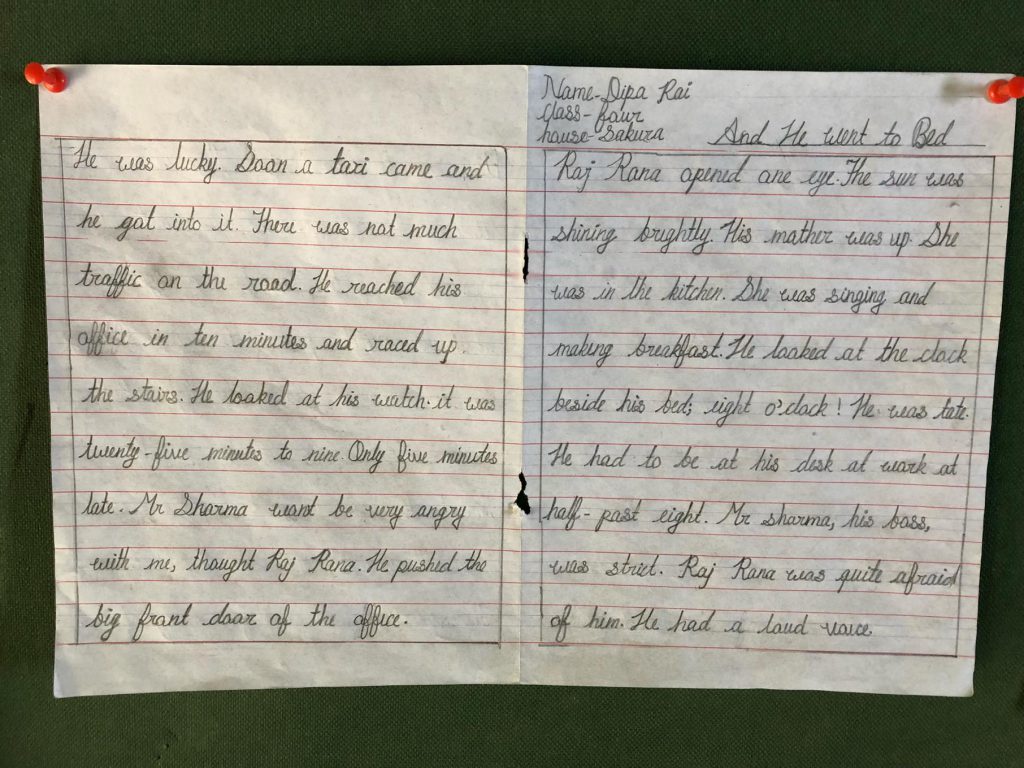 He was lucky. Soon a taxi came and
he got into it. There was not much
traffic on the road. He reached his
office in ten minutes and raced up
the stairs. He looked at his watch. it was
twenty-five minutes to nine. Only five minutes
late. Mr Sharma wont be very angry
with me, thought Raj Rana. He pushed the
big front door of the office.
Name-Dipa Rai
class-four
house-Sakura
And He went to Bed
Raj Rana opened one eye. The sun was
shining brightly. His mother was up. She
was in the kitchen. She was singing and
making breakfast. He looked at the clock
beside his bed; eight o'clock! He was late.
He had to be at his desk at work at
half-past eight. Mr sharma, his boss,
was strict. Raj Rana was quite afraid
of him. He had a loud voice.